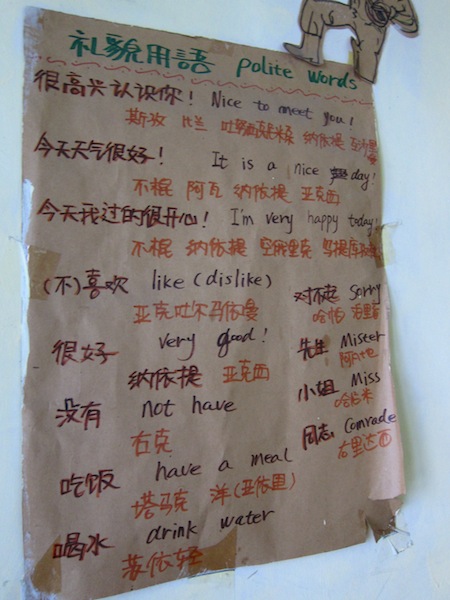 礼貌用語 polite words
很高兴认识你! Nice to meet you!
斯孜 比兰 纳依提
今天天气很好! It is a nice day!
不棍 阿瓦 纳依提 亚克西
今天我过的很开心! I'm very happy today!
不棍 纳依提
(不)喜欢 like (dislike)
亚克吐尔马依曼
很好 very good!
纳依提 亚克西
没有 not have
右克
吃饭 have a meal
塔马克 洋(亚依里)
喝水 drink water
苏依轻
对不起 Sorry
先生 Mister
小姐 Miss
同志 Comrade
右里达西